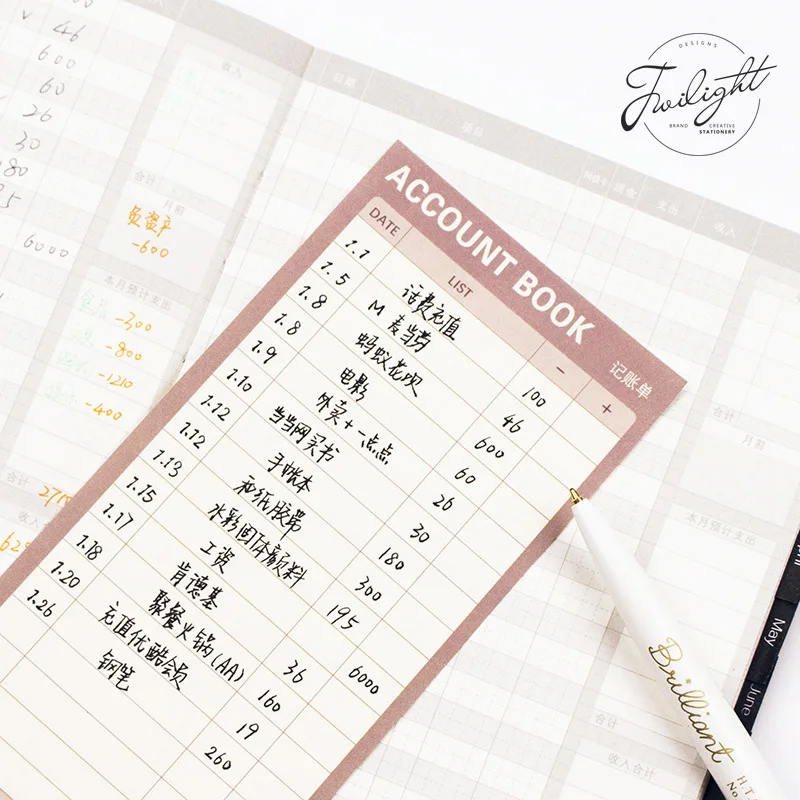 DESIGNS
Twilight
BRAND CREATIVE
STATIONERY
46
600
60
26
30
6000
收入
合计
月前
负资产
-600
本月预计支出
-300
-800
-1210
-400
合计
日期
项目
支出
收入
ACCOUNT BOOK
记账单
DATE LIST - +
1.1 话费充值 100
1.5 M 麦当劳 46
1.8 蚂蚁花呗 600
1.8 电影 60
1.9 外卖+一点点 26
1.10 当当网买书 30
1.12 手帐本 180
1.12 和纸胶带 300
1.13 水彩固体颜料 195
1.15 工资 6000
1.17 肯德基 36
1.18 聚餐火锅(AA) 160
1.20 充值优酷会员 19
1.26 钢笔 260
合计
月前
本月预计支出
合计
收入合计
May
June
Brilliant